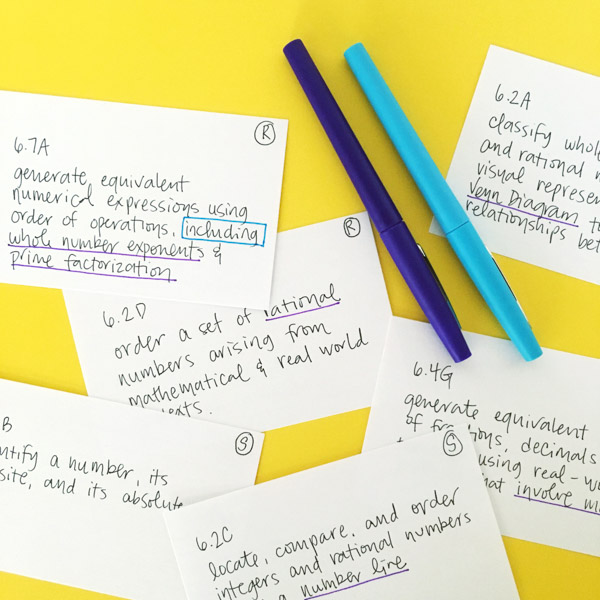 R
6.7A
generate equivalent
numerical expressions using
order of operations, including
whole number exponents &
prime factorization
6.2A
classify
and rational
visual
Venn Diagram
relationships
R
6.2D
order a set of rational
numbers arising from
mathematical & real world
6.4G
generate equivalent
of decimals
using real-
involve
B
S
a number, its
and its absolute
S
6.2C
locate, compare, and order
integers and rational numbers
a number line